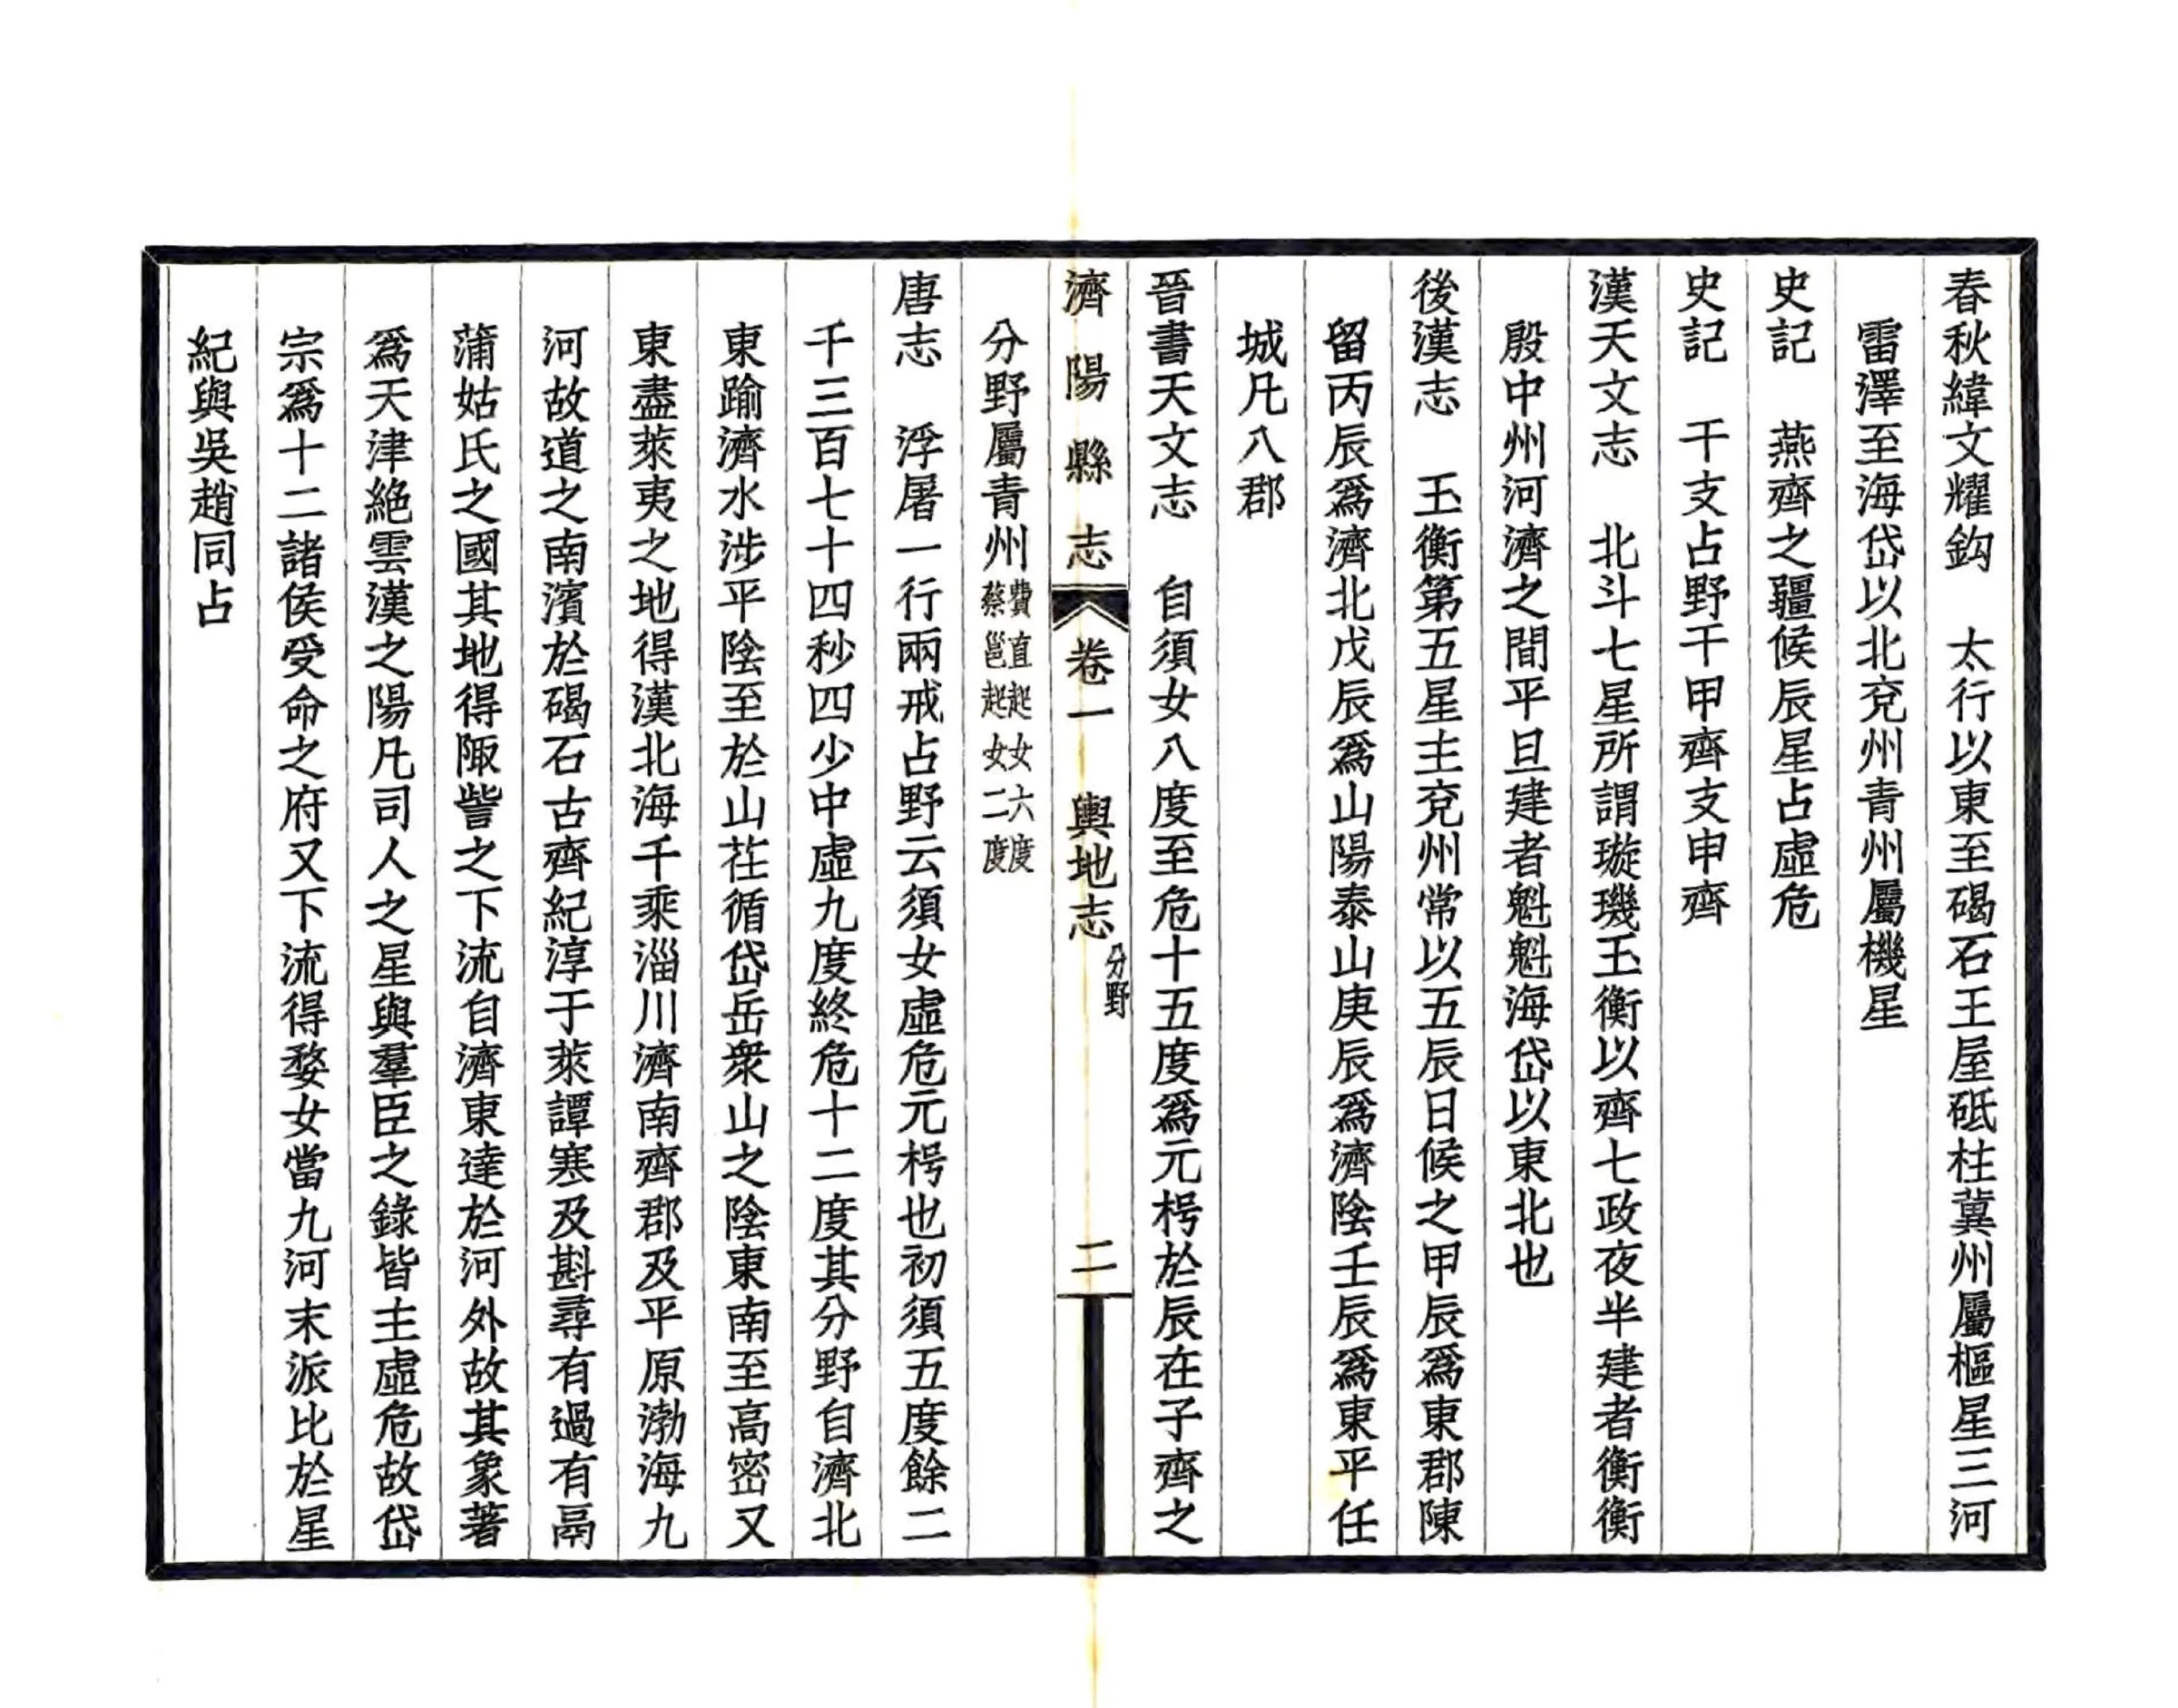 春秋緯文耀鈎　太行以東至碣石王屋砥柱冀州屬樞星三河
雷澤至海岱以北兗州青州屬機星
史記　燕齊之疆候辰星占虛危
史記　干支占野干甲齊支申齊
漢天文志　北斗七星所謂璇璣玉衡以齊七政夜半建者衡衡
殷中州河濟之間平旦建者魁魁海岱以東北也
後漢志　玉衡第五星主兗州常以五辰日候之甲辰爲東郡陳
留丙辰爲濟北戊辰爲山陽泰山庚辰爲濟陰壬辰爲東平任
城凡八郡
晉書天文志　自須女八度至危十五度爲元枵於辰在子齊之
濟陽縣志　卷一　輿地志　分野　二
分野屬青州費直起女六度蔡邕起女二度
唐志　浮屠一行兩戒占野云須女虛危元枵也初須五度餘二
千三百七十四秒四少中虛九度終危十二度其分野自濟北
東踰濟水涉平陰至於山茌循岱岳衆山之陰東南至高密又
東盡萊夷之地得漢北海千乘淄川濟南齊郡及平原渤海九
河故道之南濱於碣石古齊紀淳于萊譚寒及斟尋有過有鬲
蒲姑氏之國其地得陬訾之下流自濟東達於河外故其象著
爲天津絕雲漢之陽凡司人之星與羣臣之錄皆主虛危故岱
宗爲十二諸侯受命之府又下流得婺女當九河末派比於星
紀與吳趙同占